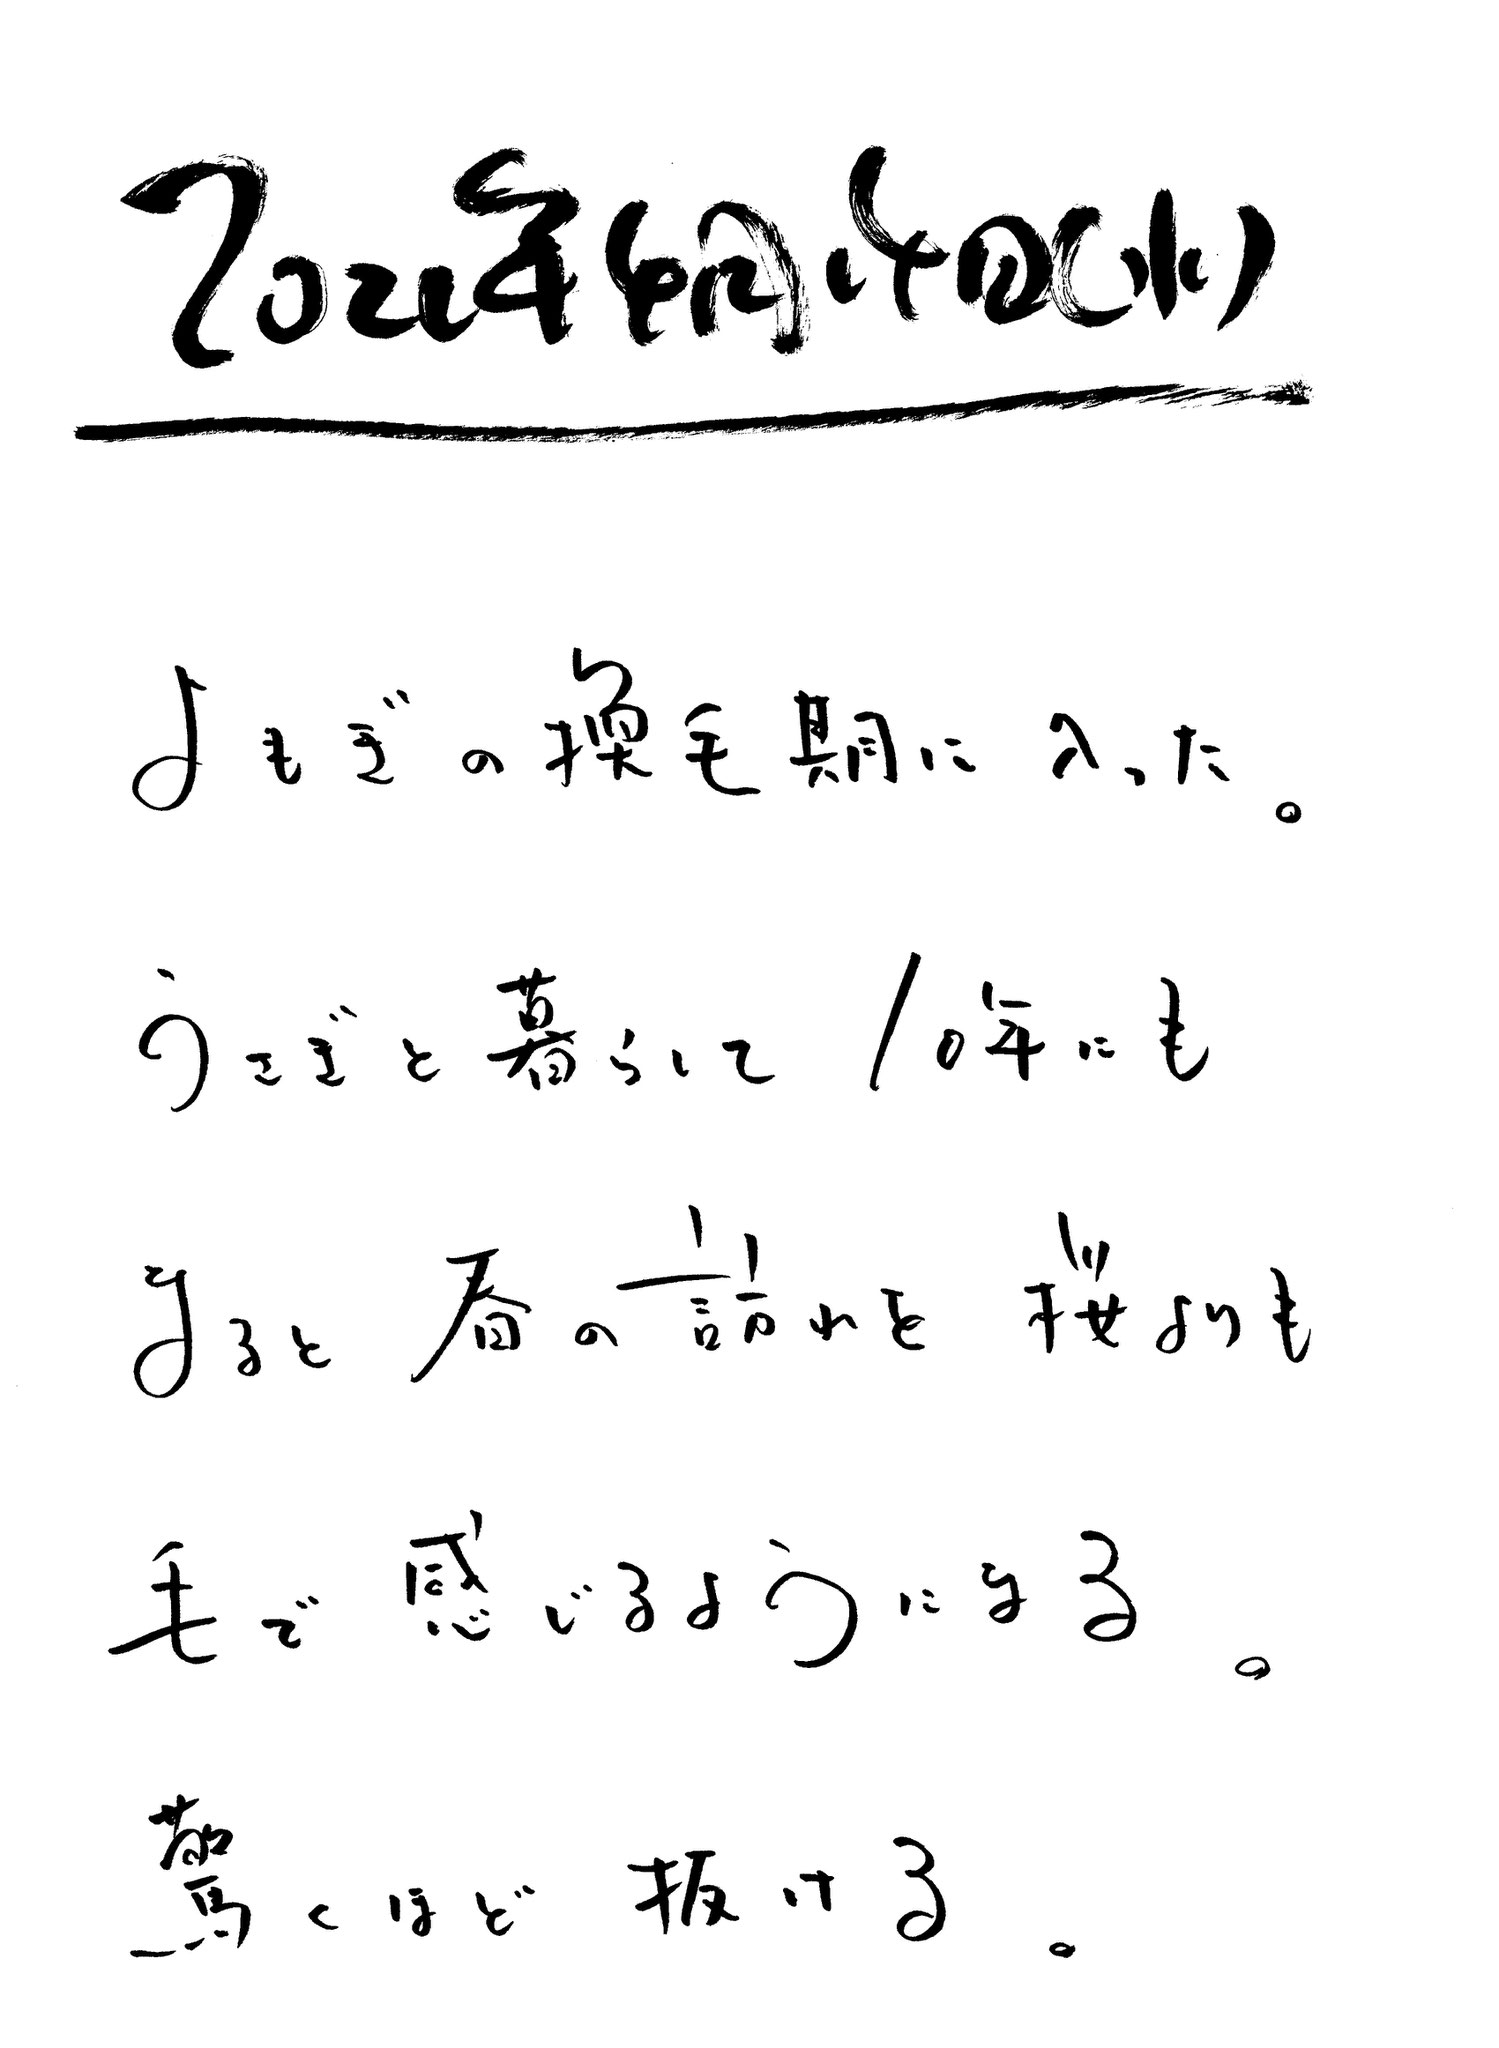 2021年4月14日(水)
よもぎの換毛期に入った。
うさぎと暮らして10年にも
なると春の訪れを桜よりも
毛で感じるようになる。
驚くほど抜ける。